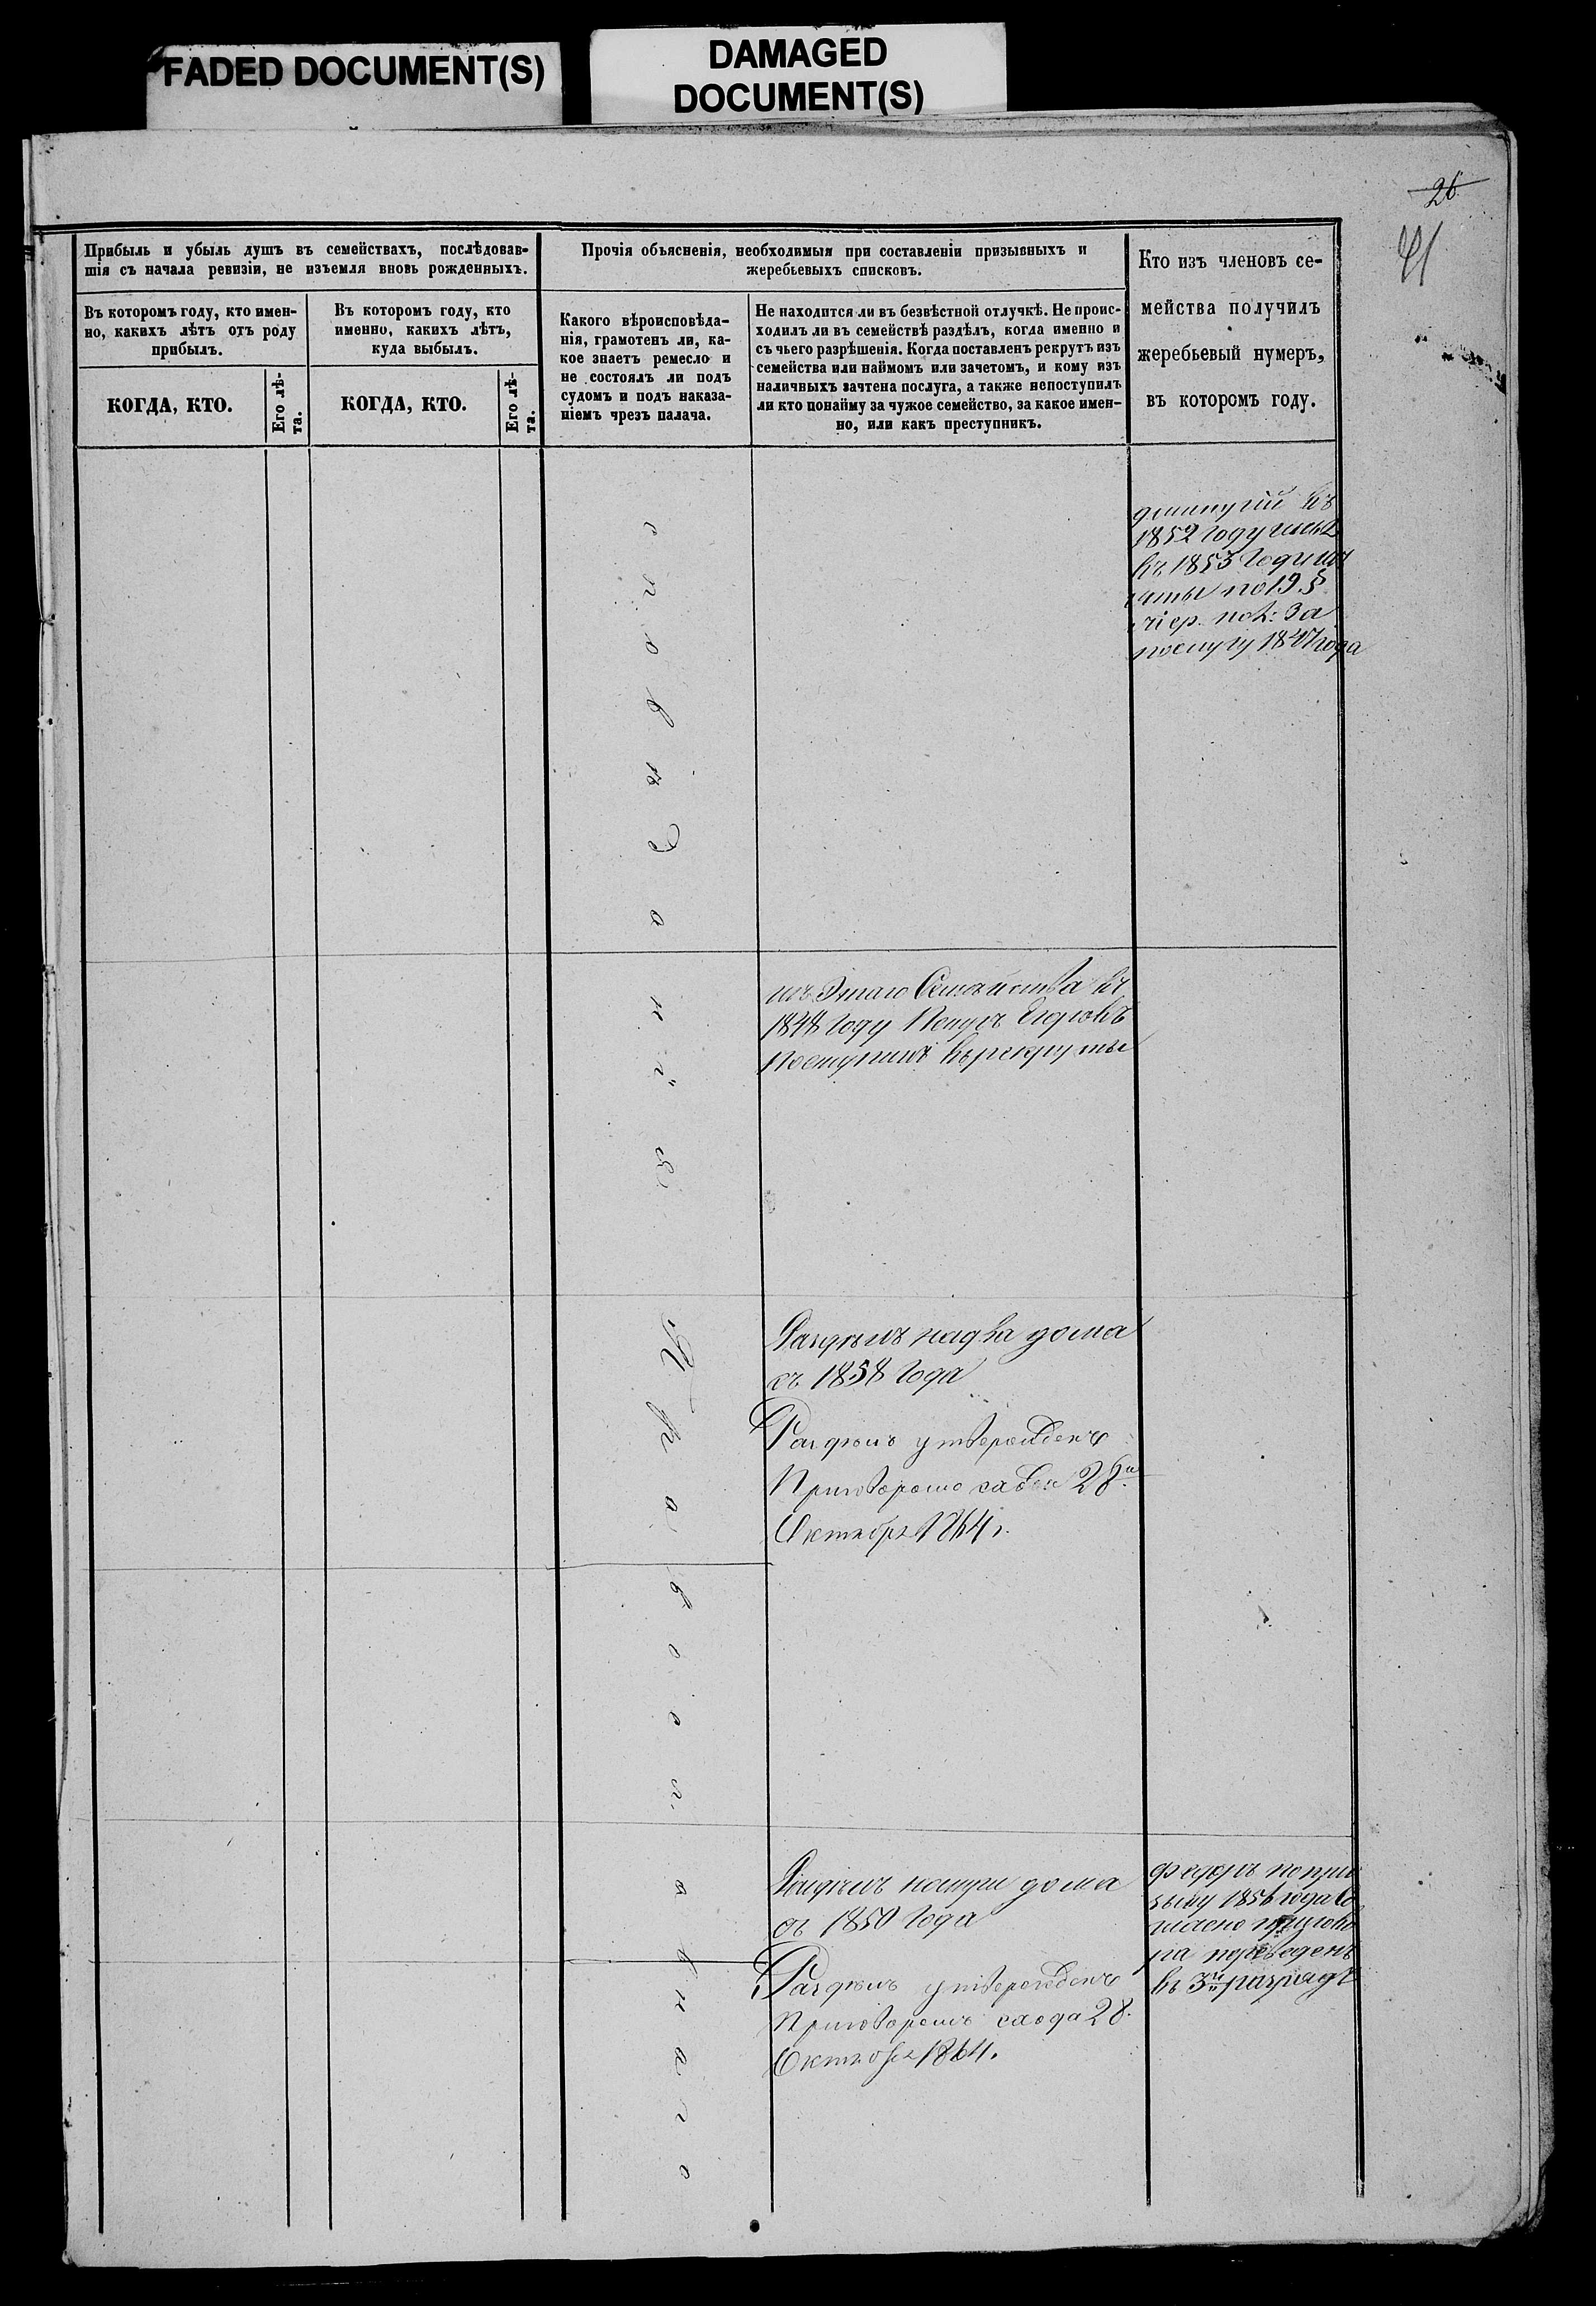 FADED DOCUMENT(S)
DAMAGED
DOCUMENT(S)
26
41
Прибыль и убыль душъ въ семействахъ, послѣдовав-
шія съ начала ревизіи, не изъемля вновь рожденныхъ.
Въ которомъ году, кто имен-
но, какихъ лѣтъ отъ роду
прибылъ.
КОГДА, КТО.
Его лѣ-
та.
Въ которомъ году, кто
именно, какихъ лѣтъ,
куда выбылъ.
КОГДА, КТО.
Его лѣ-
та.
Прочія объясненія, необходимыя при составленіи призывныхъ и
жеребьевыхъ списковъ.
Какого вѣроисповѣда-
нія, грамотенъ ли, ка-
кое знаетъ ремесло и
не состоялъ ли подъ
судомъ и подъ наказа-
ніемъ чрезъ палача.
Не находится ли въ безвѣстной отлучкѣ. Не проис-
ходилъ ли въ семействѣ раздѣлъ, когда именно и
съ чьего разрѣшенія. Когда поставленъ рекрутъ изъ
семейства или наймомъ или зачетомъ, и кому изъ
наличныхъ зачтена послуга, а также непоступилъ
ли кто понайму за чужое семейство, за какое имен-
но, или какъ преступникъ.
Кто изъ членовъ се-
мейства получилъ
жеребьевый нумеръ,
въ которомъ году.
въ
1852 году
въ 1853 году
по 19 §
за
послугу 1847 года
исповѣданія
Православнаго
изъ Этаго Семейства въ
1848 году
Поступилъ въ рекруты
Раздѣлъ на два дома
съ 1858 Года
Раздѣлъ утвержденъ
Приговоромъ 28
Октября 1864 г.
Раздѣлъ дома
съ 1850 Года
Раздѣлъ утвержденъ
Приговоромъ схода 28.
Октября 1864.
по при
зыву 1856 года со
гласно пригово
ра переведенъ
въ 3й разрядъ